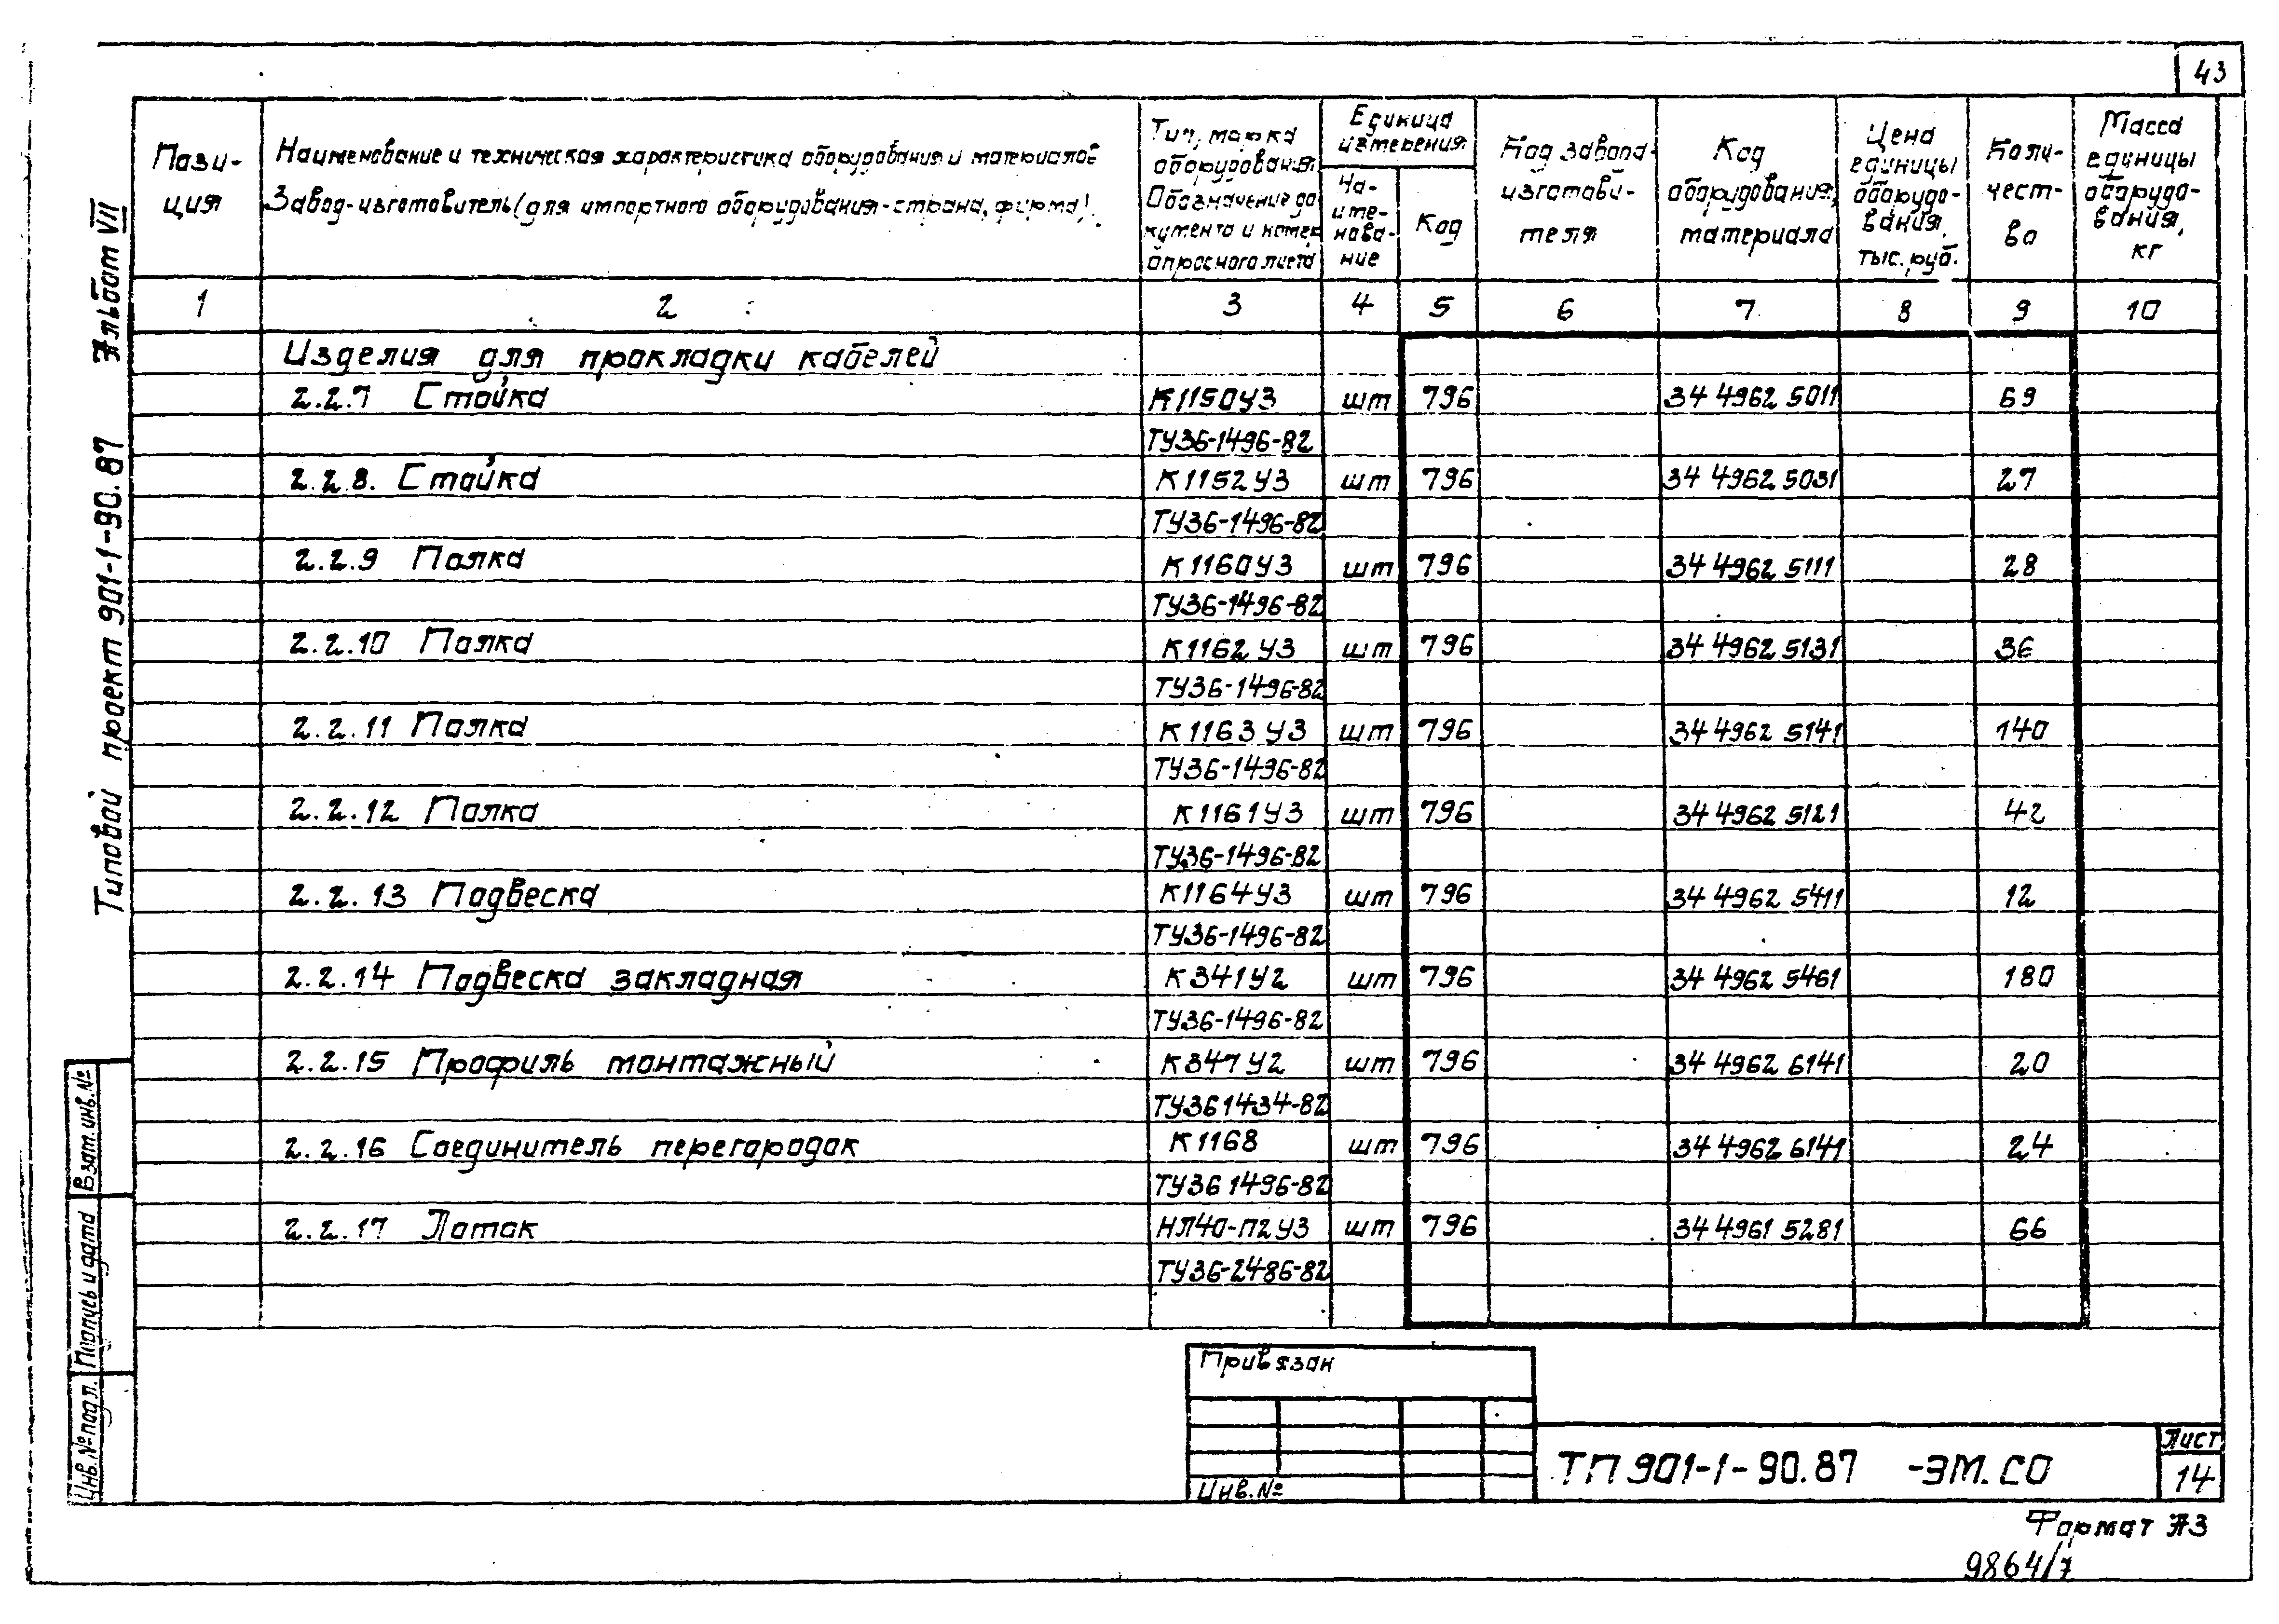 43
Пози-
ция
Наименование и техническая характеристика оборудования и материалов
Завод-изготовитель (для импортного оборудования-страна, фирма).
Тип, марка
оборудования.
Обозначение до
кумента и номер
опросного листа
Единица
измерения
На-
име-
нова-
ние
Код
Код завода-
изготови-
теля
Код
оборудования,
материала
Цена
единицы
оборудо-
вания,
тыс. руб.
Коли-
чест-
во
Масса
единицы
оборудо-
вания,
кг
1 2 3 4 5 6 7 8 9 10
Изделия для прокладки кабелей
2.2.7 Стойка К1150У3 шт 796 34 4962 5011 69
ТУ36-1496-82
2.2.8. Стойка К1152У3 шт 796 34 4962 5031 27
ТУ36-1496-82
2.2.9 Полка К1160У3 шт 796 34 4962 5111 28
ТУ36-1496-82
2.2.10 Полка К1162У3 шт 796 34 4962 5131 36
ТУ36-1496-82
2.2.11 Полка К1163У3 шт 796 34 4962 5141 140
ТУ36-1496-82
2.2.12 Полка К1161У3 шт 796 34 4962 5121 42
ТУ36-1496-82
2.2.13 Подвеска К1164У3 шт 796 34 4962 5411 12
ТУ36-1496-82
2.2.14 Подвеска закладная К341У2 шт 796 34 4962 5461 180
ТУ36-1496-82
2.2.15 Профиль монтажный К347У2 шт 796 34 4962 6141 20
ТУ36 1434-82
2.2.16 Соединитель перегородок К1168 шт 796 34 4962 6141 24
ТУ36 1496-82
2.2.17 Лоток НЛ40-П2У3 шт 796 34 4961 5281 66
ТУ36-2486-82
Типовой проект 901-1-90.87 Альбом VII
Взам. инв. №
Подпись и дата
Инв. № подл.
Привязан
Инв. №
ТП 901-1-90.87 -ЭМ.СО
Лист
14
Формат А3
9864/7